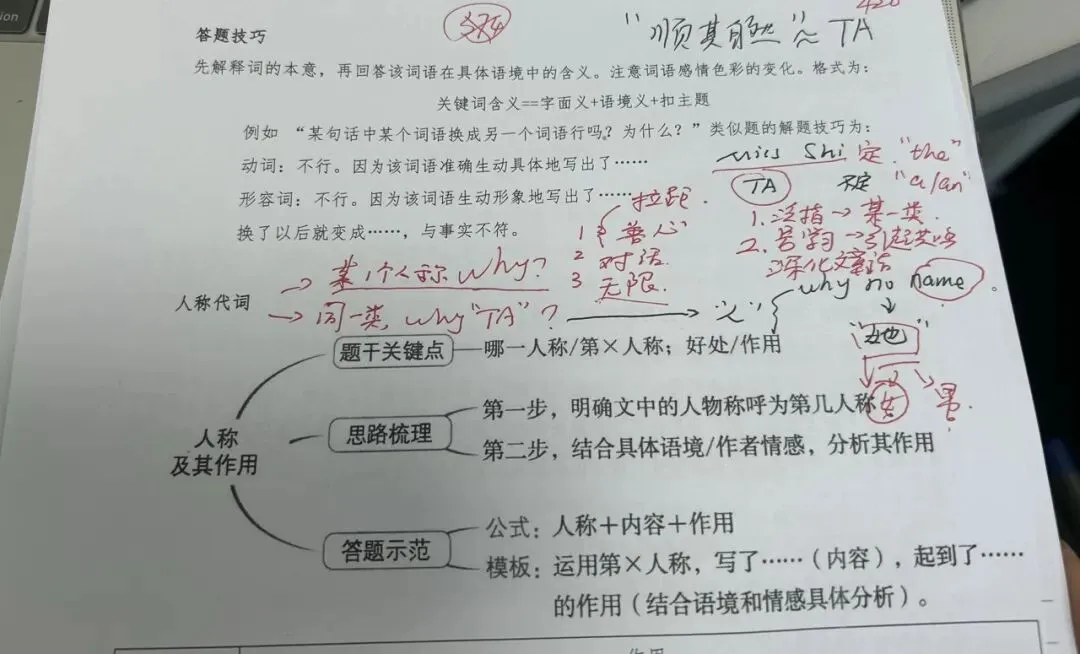 答题技巧
"顺其自然"≈TA
先解释词的本意，再回答该词语在具体语境中的含义。注意词语感情色彩的变化。格式为：
关键词含义==字面义+语境义+扣主题
例如 “某句话中某个词语换成另一个词语行吗？为什么？”类似题的解题技巧为：
动词：不行。因为该词语准确生动具体地写出了……
Miss Shi 定 "the"
TA 不定 "a/an"
形容词：不行。因为该词语生动形象地写出了……
拉起.
1. 泛指→某一类.
换了以后就变成……，与事实不符。
1
2 对话
3 无限.
2. 引起共鸣
深化文章
→某个人称 why?
why no name
人称代词
→同一类 why "TA"?
"她"
题干关键点
哪一人称/第×人称；好处/作用
人称
及其作用
思路梳理
第一步，明确文中的人物称呼为第几人称
第二步，结合具体语境/作者情感，分析其作用
答题示范
公式：人称＋内容＋作用
模板：运用第×人称，写了……（内容），起到了……
的作用（结合语境和情感具体分析）。